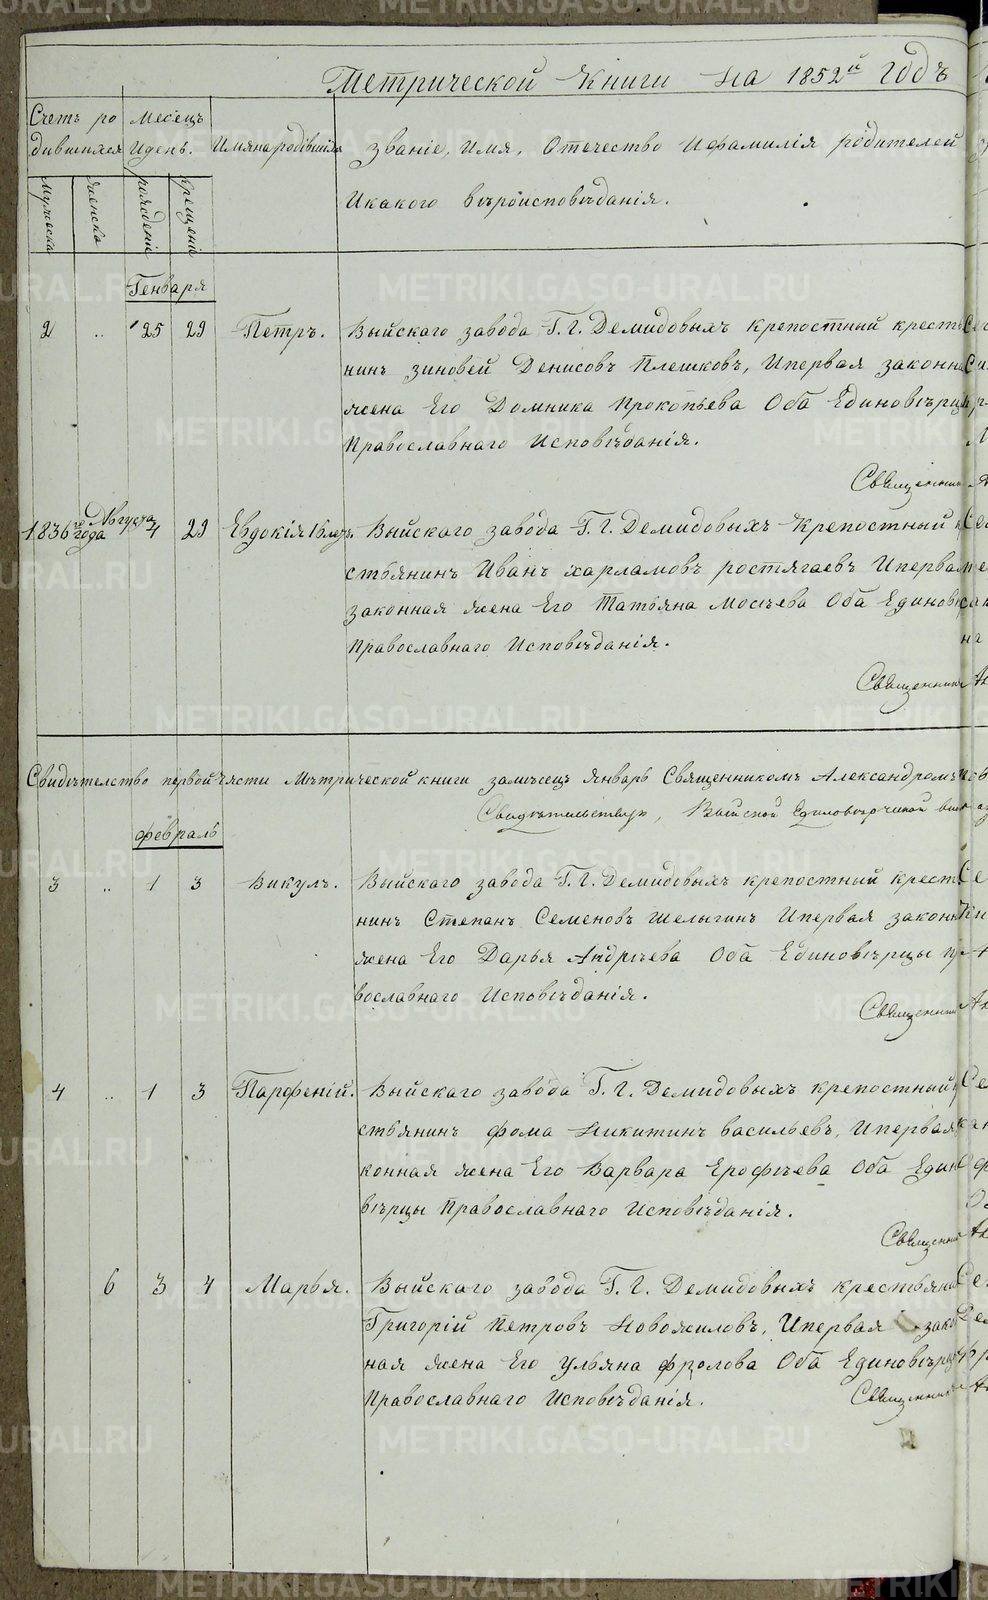 Метрической Книги На 1852й Годъ
Счетъ ро
дившихся
Месецъ
И день.
Имяна родившихся
Званіе, Имя, Отечество И фамилія родителей
И какого вѣроисповѣданія.
Мужеска
Женска
рожденіе
Крещеніе
Генваря
2 .. 25 29 Петръ. Выйскаго завода Г. Г. Демидовыхъ крепостный кресть
нинъ зиновей Денисовъ Плешковъ, И первая законна
жена Его Домника Прокопьева Оба Единовѣрц
Православнаго Исповѣданія.
Священник
1836го года Августа 4 29 Евдокія 16 лѣтъ. Выйскаго завода Г. Г. Демидовыхъ Крепостный
стьянинъ Иванъ харламовъ ростягаевъ И первая
законная жена Его Татьяна Мосѣева Оба Единовѣ
Православнаго Исповѣданія.
Священник
Свидѣтелство первой части Мѣтрической книги замѣсецъ Январь Священникомъ Александромъ
Выйской Единовѣрческой
февраль
3 .. 1 3 Викулъ. Выйскаго завода Г. Г. Демидовыхъ крепостный крест
нинъ Степанъ Семеновъ Шелыгинъ И первая законн
жена Его Дарья Андрѣева Оба Единовѣрцы пр
вославнаго Исповѣданія.
Священник
4 .. 1 3 Парфеній. Выйскаго завода Г. Г. Демидовыхъ крепостный
стьянинъ фома Никитинъ васильевъ, И первая
конная жена Его Варвара Ерофѣева Оба Един
вѣрцы Православнаго Исповѣданія.
Священни
6 3 4 Марья. Выйскаго завода Г. Г. Демидовыхъ крестьяни
Григорій Петровъ Новожиловъ, И первая закон
ная жена Его Ульяна фролова Оба Единовѣрц
Православнаго Исповѣданія.
Священник
METRIKI.GASO-URAL.RU